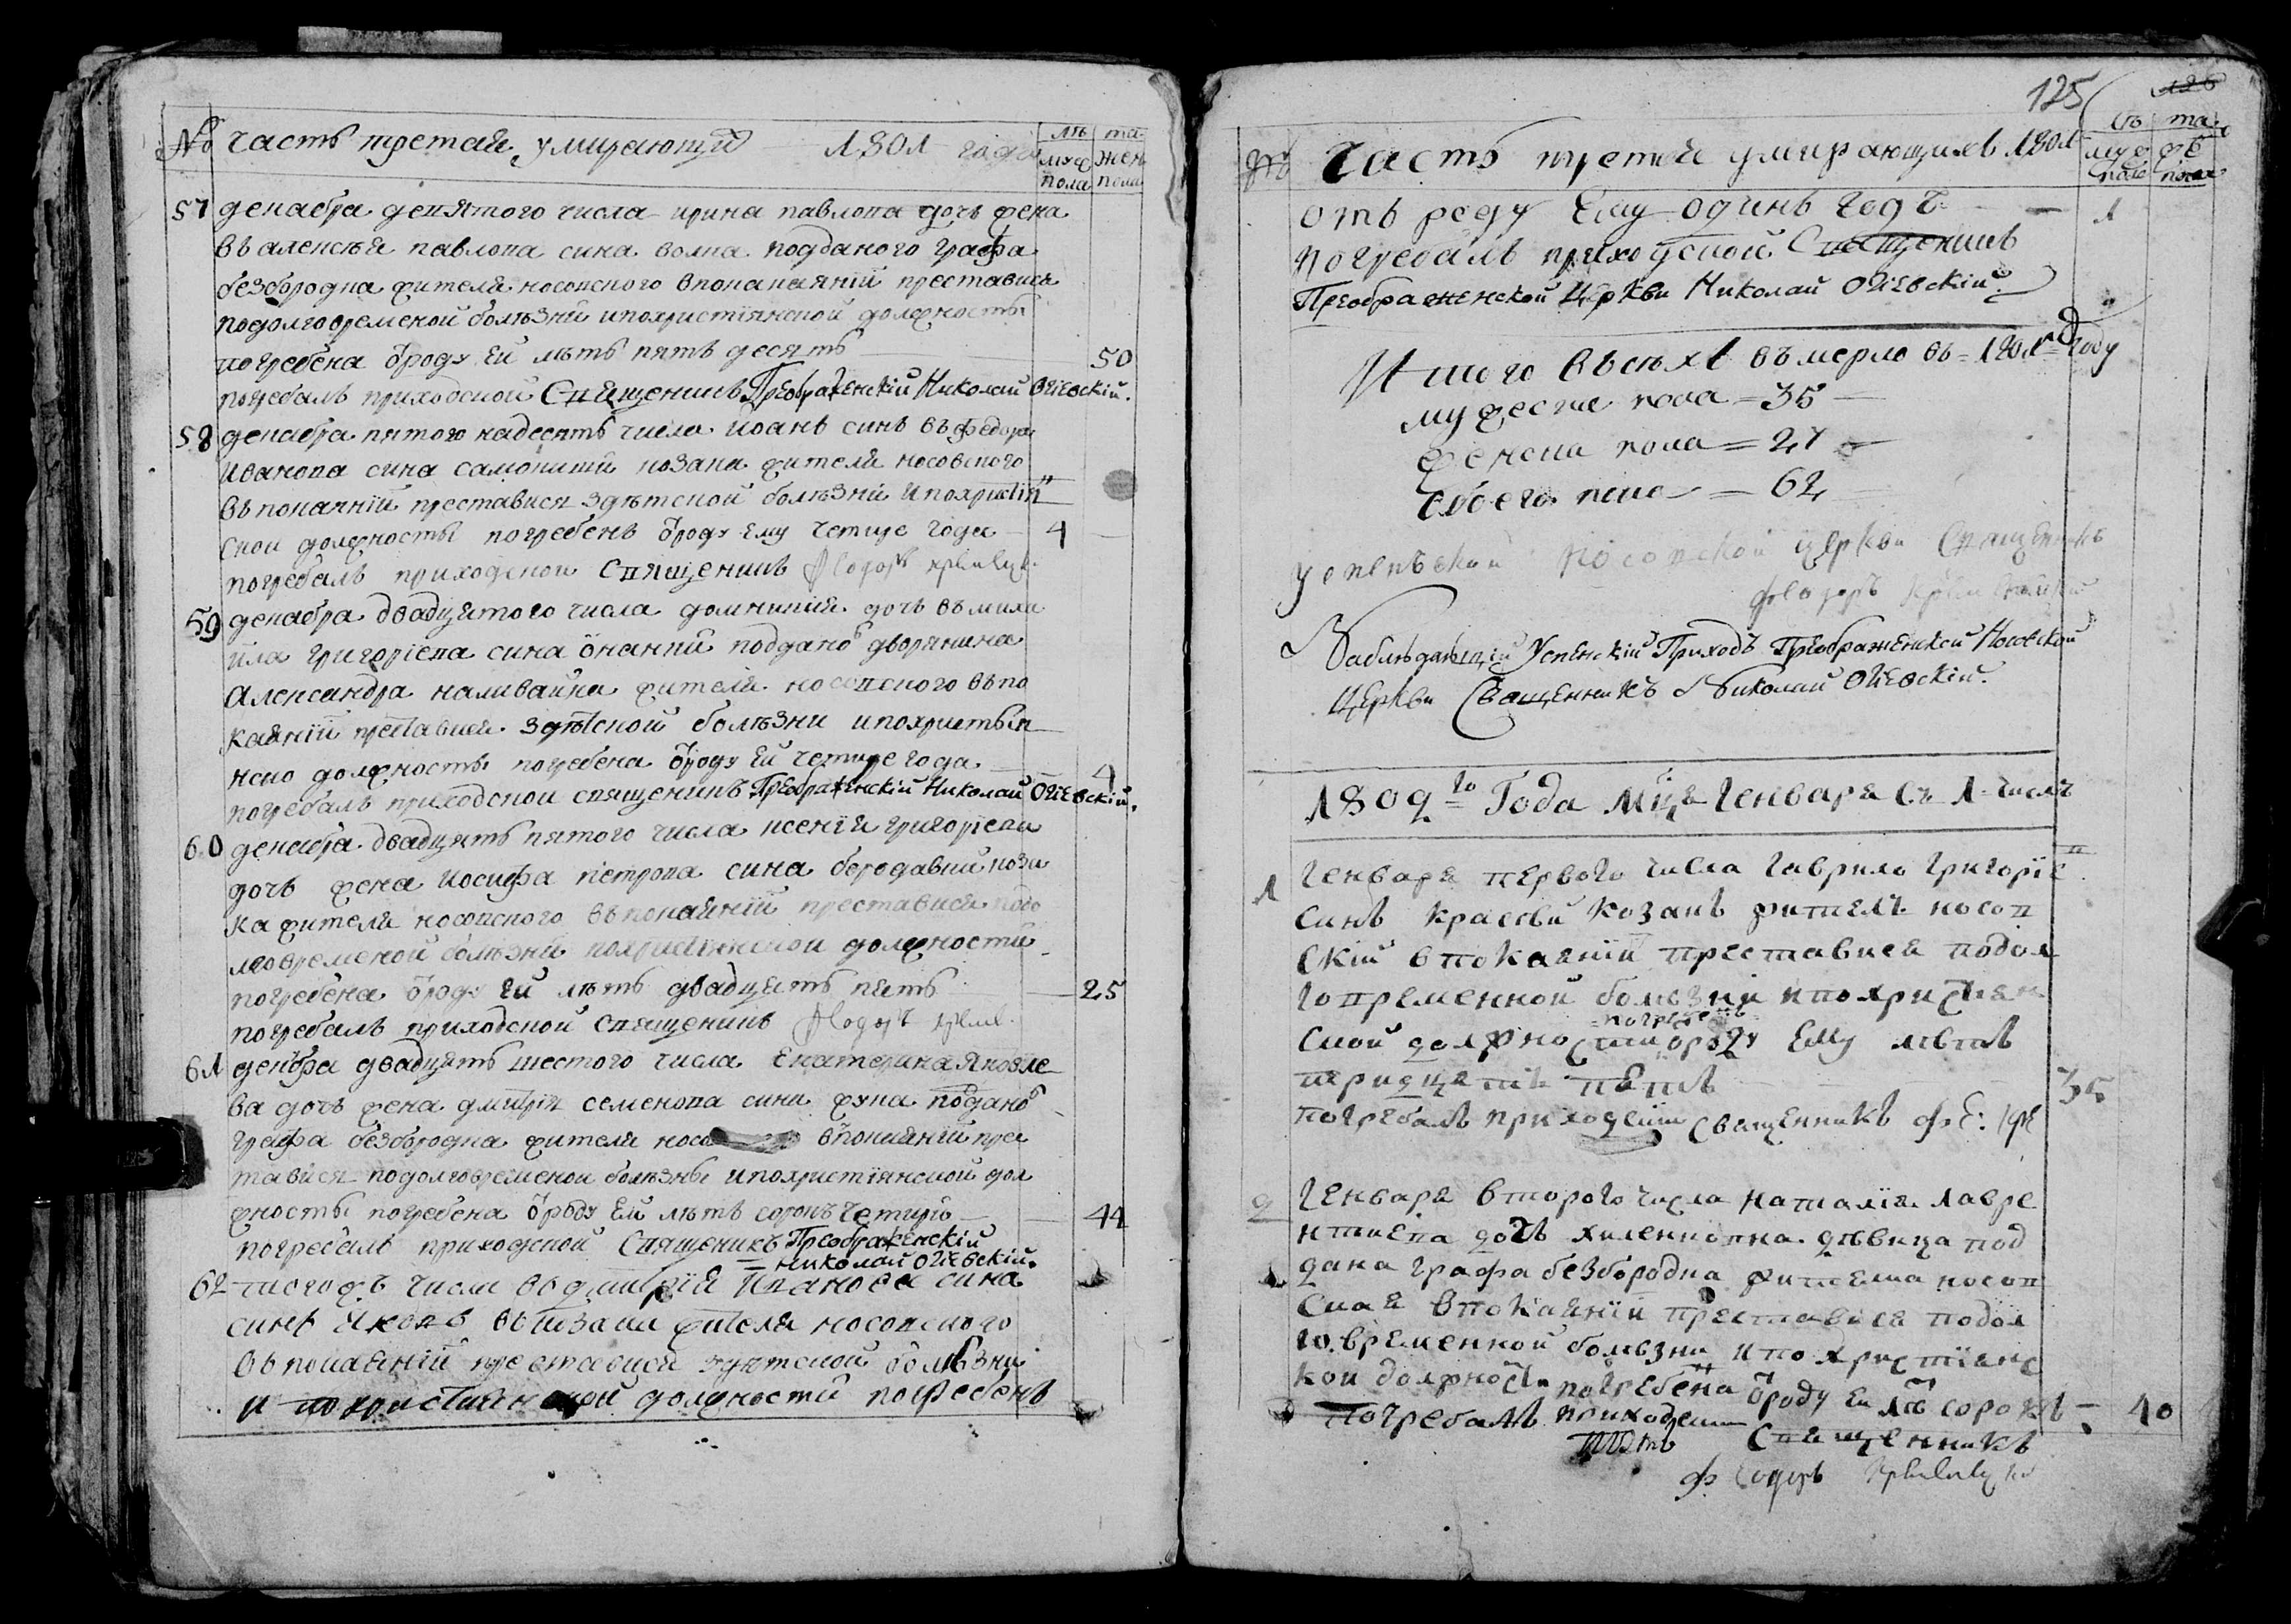 № часть третая, умирающий 1801 года
лѣ та
муж жен
пола пола
57 декабра девятого числа ирина павлова дочъ жена
въ алексѣя павлова сина волка подданого графа
безбородка жителя носовского впокаяніи преставися
подолговременой болѣзни ипохристіянской должносты
погребена ѿроду ей лѣтъ пять десять 50
погребалъ приходской Священикъ Преображенскій Николай Огіевскій.
58 декабра пятого надесять числа иоанъ синъ въ федора
Иванова сина козака жителя носовского
въ покаяніи преставися здѣтской болѣзни ипохристія
ской должносты погребенъ ѿроду ему четире года 4
погребалъ приходской Священикъ
59 декабра двадцятого числа домникия дочъ въ миха
ила григоріева сина подданог дворянина
Александра наливайка жителя носовского въ по
каяніи преставися здѣтской болѣзни ипохристіян
ской должносты погребена ѿроду ей четире года 4
погребалъ приходской священикъ Преображенскій Николай Огіевскій.
60 декабра двадцять пятого числа ксенія григоріева
дочъ жена иосифа петрова сина бородавки коза
ка жителя носовского въ покаяніи преставися подо
лговременой болѣзни похристіянской должности
погребена ѿроду ей лѣтъ двадцять пять 25
погребалъ приходской священикъ
61 декабра двадцять шестого числа Екатерина Яковле
ва дочъ жена дмитрія семенова сина поданог
графа безбородка жителя носо впокаяніи прес
тавися подолговременой болѣзны ипохристіянской дол
жносты погребена ѿроду ей лѣтъ сорокъ четири 44
погребалъ приходской Священикъ Преображенскій
Николай Огіевскій.
62 тогожъ числа въ димитрія Иванова сина
синъ Яковъ жителя носовского
въ покаяніи преставися здѣтской болѣзни
и похристиянской должности погребенъ
125
126
№ Часть третея умирающихъ 1801
лѣ та
муж же
пола пола
отъ роду Ему одинъ годъ 1
погребалъ приходской Священикъ
Преображенской Церкви Николай Огіевскій
Итого въсѣхъ въмерло въ 1801 году
мужеска пола = 35
женска пола = 27
обоего пола = 62
успенской Носовской церкви Священикъ
феодоръ
Наблюдающій Успенскій Приходъ Преображенской Носовской
Церкви Священникъ Николай Огіевскій.
1802 го Года мца Генваря съ 1 числа
1 Генваря первого числа гаврило григоріев
синъ козакъ житель носов
скій впокаяніи преставися подол
говременной болѣзни ипохристіян
ской должности погребенъ ѿроду Ему лѣтъ
тридцять пять 35
погребалъ приходский священникъ
2 Генваря второго числа наталія лавре
нтиева дочъ дѣвица под
дана графа безбородка жителка носов
ская впокаяніи преставися подол
говременной болѣзни ипо христіянс
кой должности погребена ѿроду ей лѣ сорокъ 40
погребалъ приходский
тотъ Священникъ
феодоръ